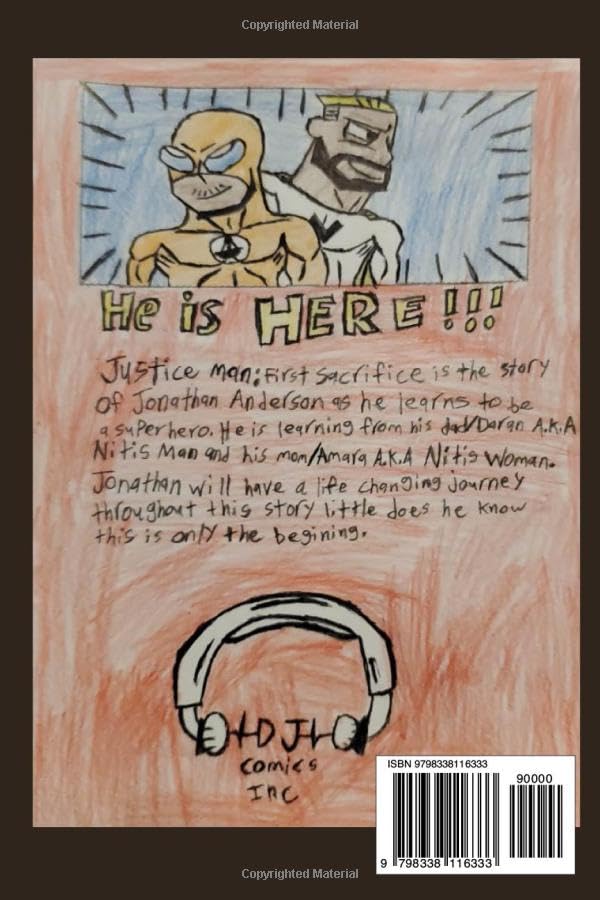 Copyrighted Material
He is HERE!!!
Justice Man: First Sacrifice is the story
of Jonathan Anderson as he learns to be
a superhero. He is learning from his dad/Daran A.K.A
Nitis Man and his mom/Amara A.K.A Nitis Woman.
Jonathan will have a life changing journey
throughout this story little does he know
this is only the begining.
DJ
comics
Inc
ISBN 9798338116333
90000
9 798338 116333
Copyrighted Material